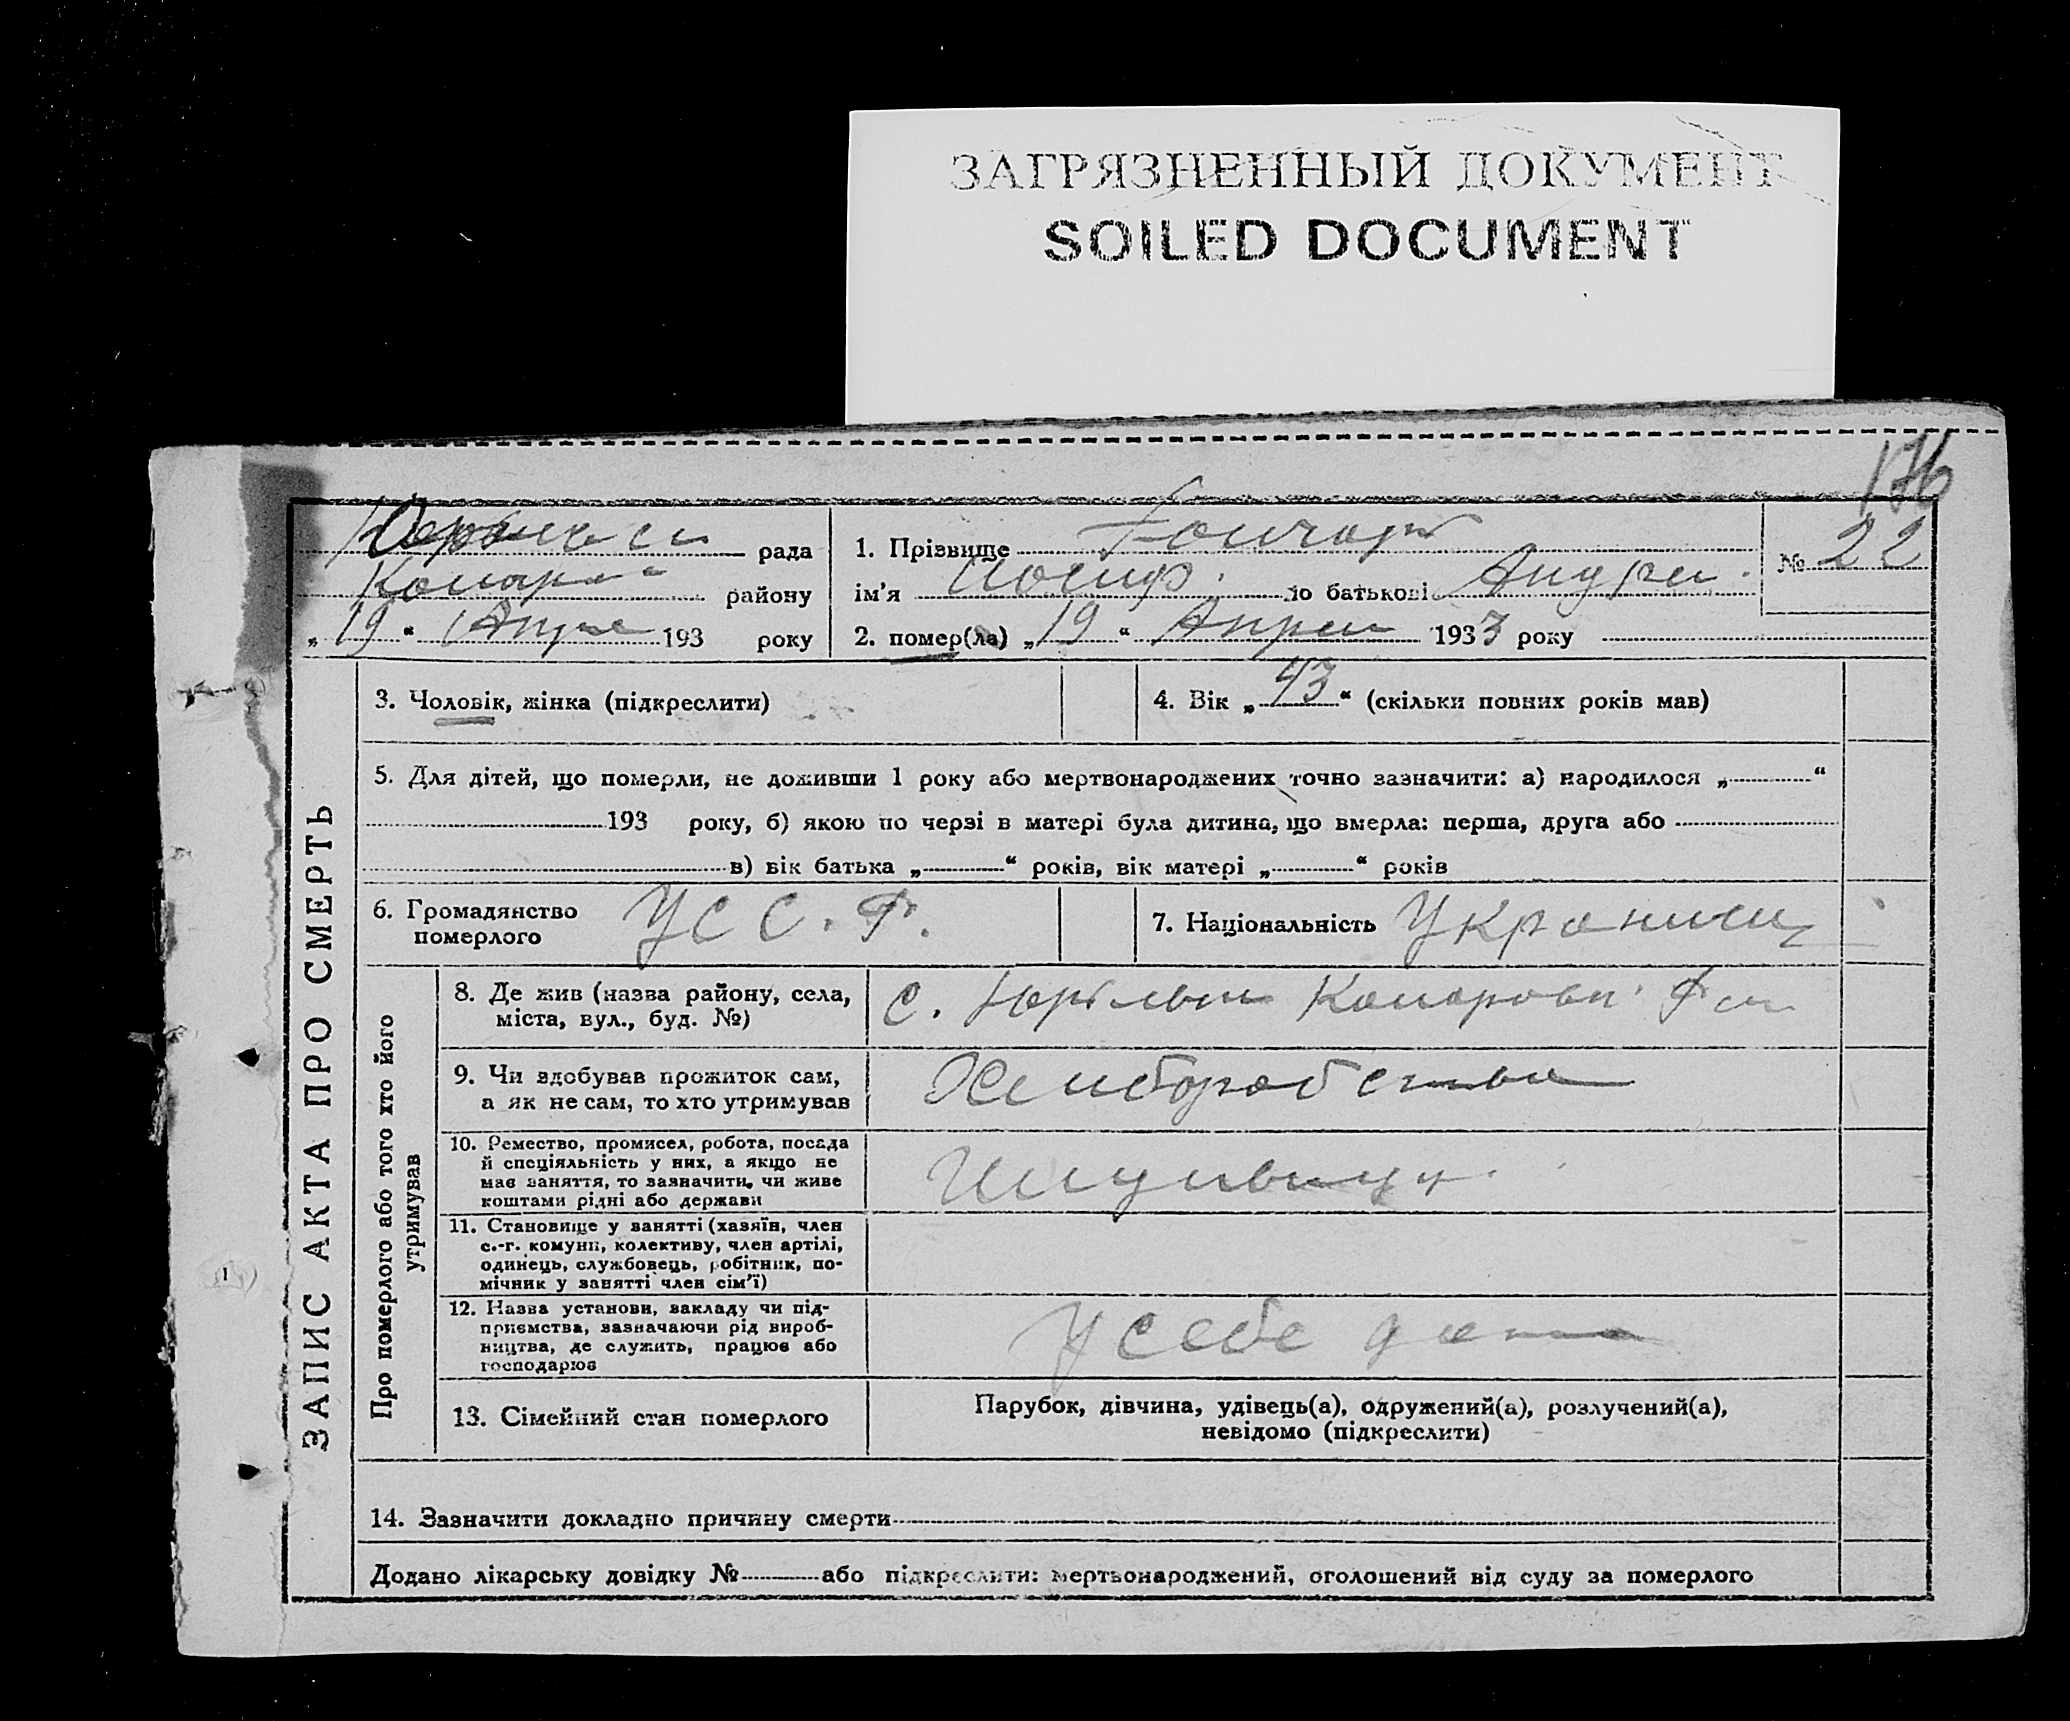 ЗАГРЯЗНЕННЫЙ ДОКУМЕНТ
SOILED DOCUMENT
176
рада
району
„19“ 193 року
1. Прізвище Гончар
ім’я Иосиф. по батькові Андре.
2. помер(ла) „19“ Апрел 1933 року
№ 22
ЗАПИС АКТА ПРО СМЕРТЬ
3. Чоловік, жінка (підкреслити)
4. Вік „43“ (скільки повних років мав)
5. Для дітей, що померли, не доживши 1 року або мертвонароджених точно зазначити: а) народилося „ “
193 року, б) якою по черзі в матері була дитина, що вмерла: перша, друга або
в) вік батька „ “ років, вік матері „ “ років
6. Громадянство
померлого
УССР.
7. Національність Украинец
Про померлого або того хто його
утримував
8. Де жив (назва району, села,
міста, вул., буд. №)
с.
9. Чи здобував прожиток сам,
а як не сам, то хто утримував
Хлиборобства
10. Ремество, промисел, робота, посада
й спеціяльність у них, а якщо не
має заняття, то зазначити, чи живе
коштами рідні або держави
11. Становище у занятті (хазяїн, член
с.-г. комуни, колективу, член артілі,
одинець, службовець, робітник, по-
мічник у занятті член сім’ї)
12. Назва установи, закладу чи під-
приємства, зазначаючи рід вироб-
ництва, де служить, працює або
господарює
У себе дома
13. Сімейний стан померлого
Парубок, дівчина, удівець(а), одружений(а), розлучений(а),
невідомо (підкреслити)
14. Зазначити докладно причину смерти
Додано лікарську довідку № або підкреслити: мертвонароджений, оголошений від суду за померлого